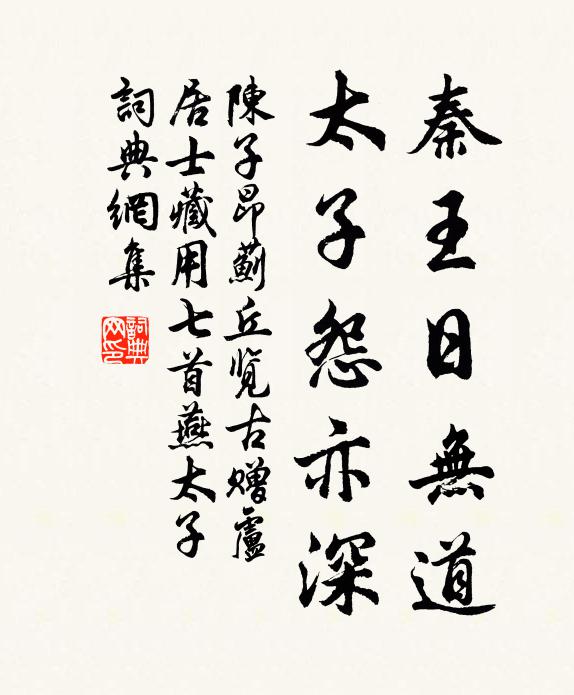 秦王日無道
太子怨亦深
陳子昂薊丘览古赠盧
居士藏用七首燕太子
詞典網集
詞典
网印